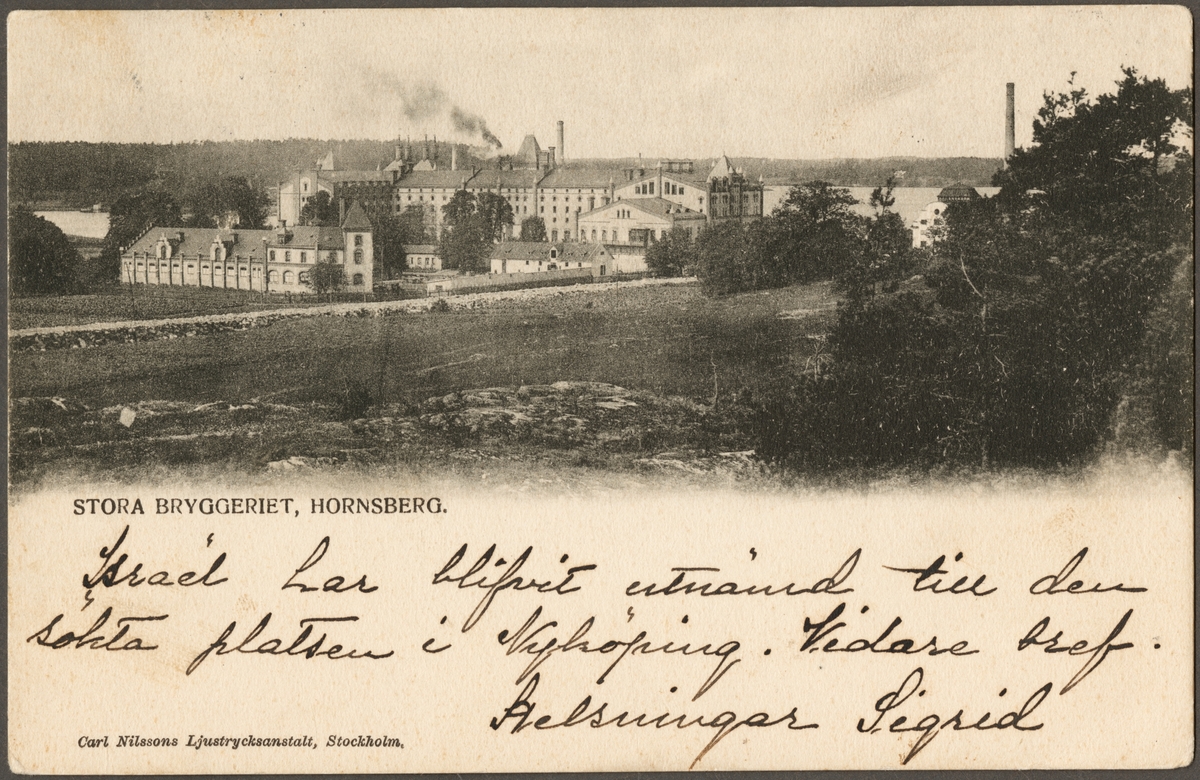 STORA BRYGGERIET, HORNSBERG.
Israël har blifvit utnämd till den
sökta platsen i Nyköping. Vidare bref.
Helsningar Sigrid
Carl Nilssons Ljustrycksanstalt, Stockholm.